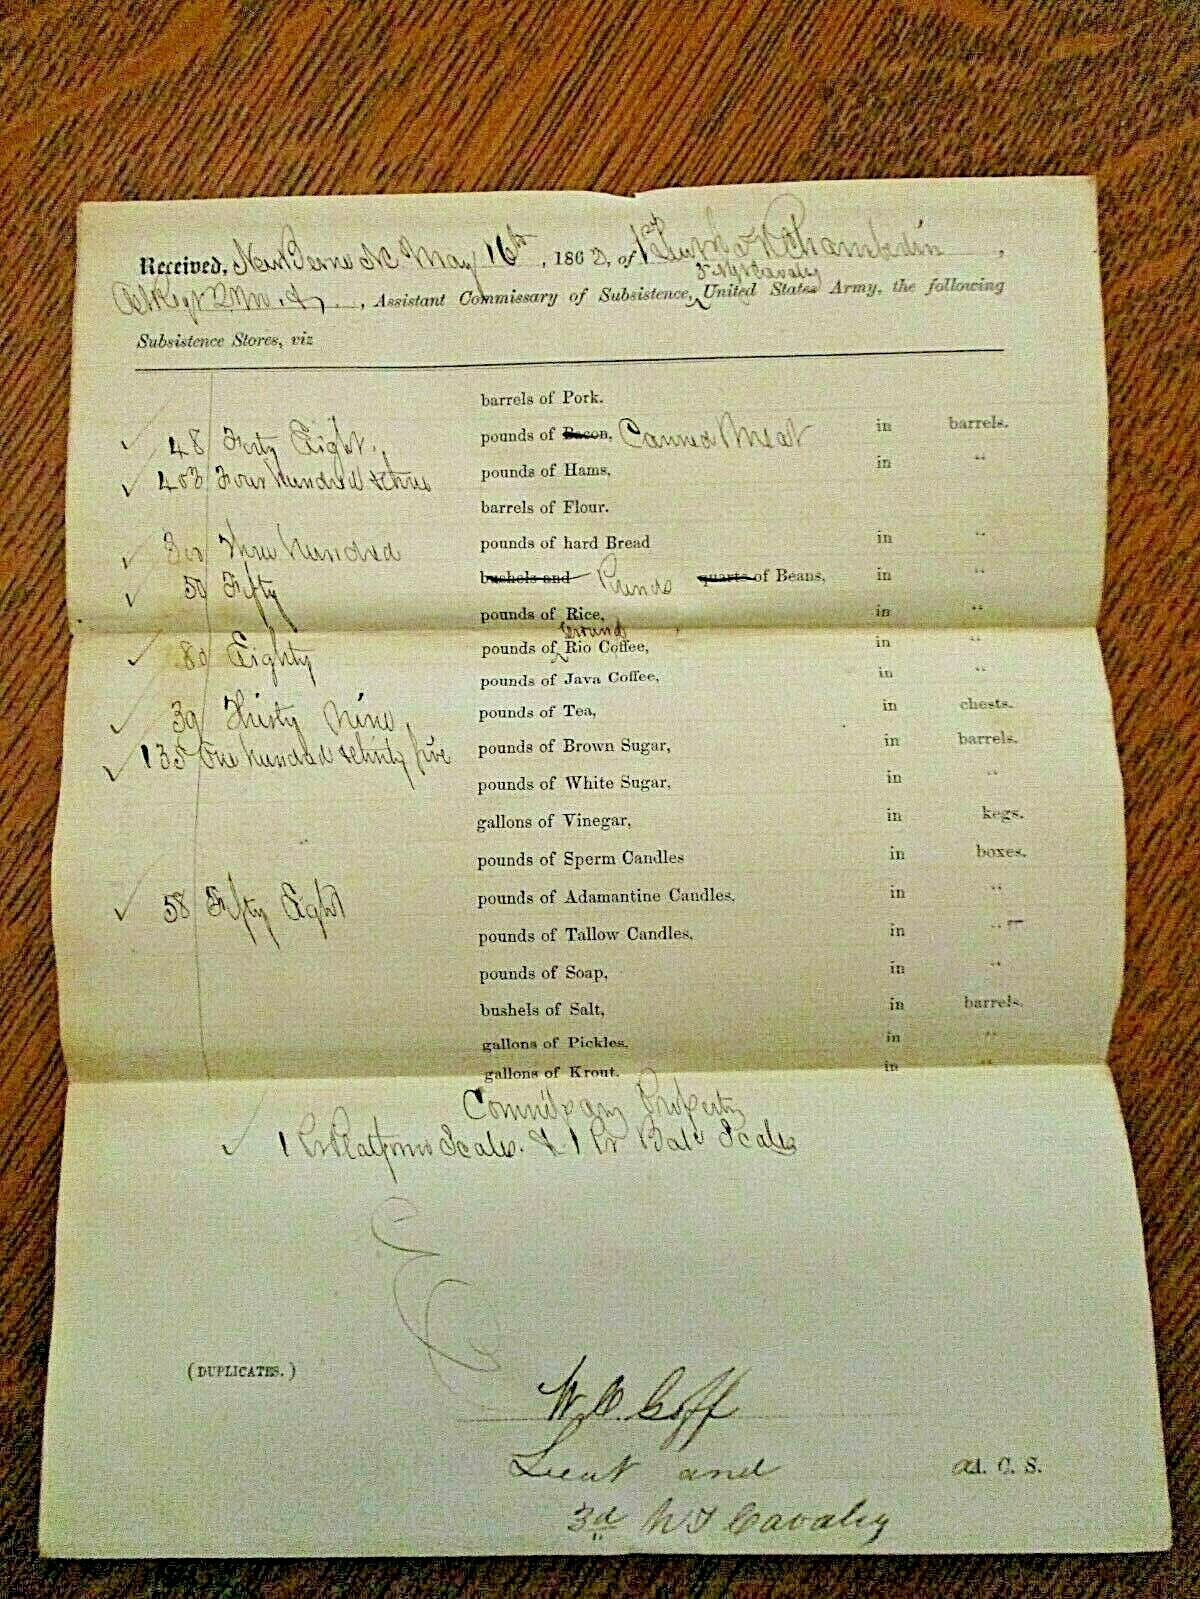 Received, NewBerne NC May 16th, 1863, of 1st Lieut Chamberlin,
3 NY Cavalry
Regt Q M &, Assistant Commissary of Subsistence, United States Army, the following
Subsistence Stores, viz
barrels of Pork.
48 Forty Eight, pounds of Bacon, Canned Meat in barrels.
403 Four hundred & three pounds of Hams, in "
barrels of Flour.
300 Three hundred pounds of hard Bread in "
50 Fifty bushels and Pounds quarts of Beans, in "
pounds of Rice, in "
Ground
80 Eighty pounds of Rio Coffee, in "
pounds of Java Coffee, in "
39 Thirty Nine, pounds of Tea, in chests.
135 One hundred & thirty five pounds of Brown Sugar, in barrels.
pounds of White Sugar, in "
gallons of Vinegar, in kegs.
pounds of Sperm Candles in boxes.
58 Fifty Eight pounds of Adamantine Candles, in "
pounds of Tallow Candles, in "
pounds of Soap, in "
bushels of Salt, in barrels.
gallons of Pickles, in "
gallons of Krout. in "
Property
1 Pr Platform Scales. & 1 Pr Scales
(DUPLICATES.)
W. C. Goff
Lieut and a A. C. S.
3d NY Cavalry